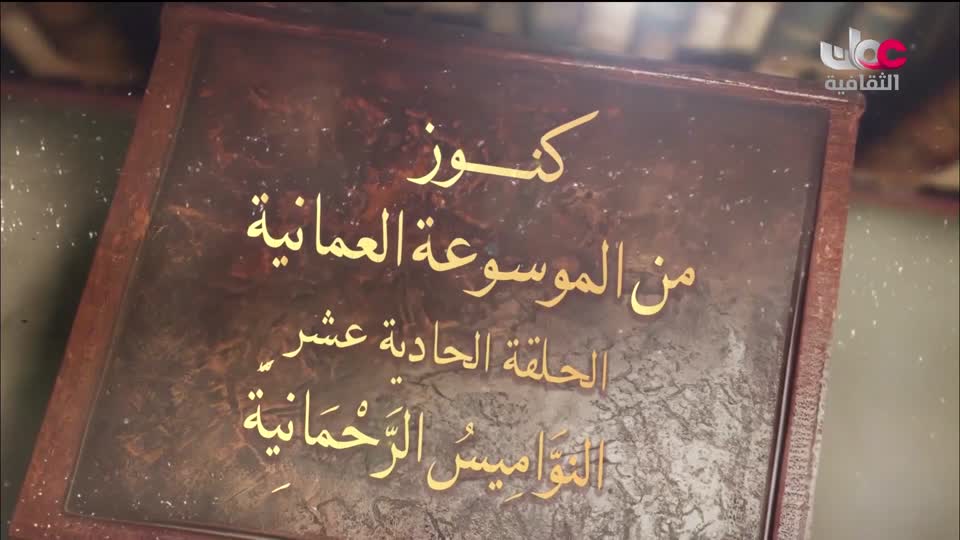 عمان
الثقافية
كنــوز
من الموسوعة العمانية
الحلقة الحادية عشر
النَوَّامِيسُ الرَّحْمَانِيَّة